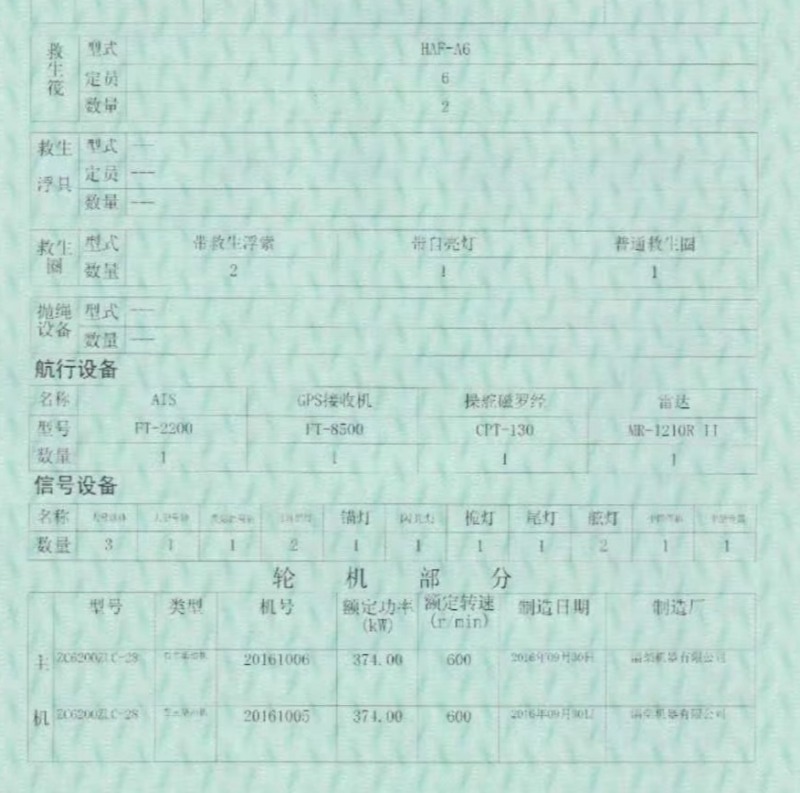 救生筏 型式 HAF-A6
定员 6
数量 2
救生浮具 型式 ---
定员 ---
数量 ---
救生圈 型式 带救生浮索 带自亮灯 普通救生圈
数量 2 1 1
抛绳设备 型式 ---
数量 ---
航行设备
名称 AIS GPS接收机 操舵磁罗经 雷达
型号 FT-2200 FT-8500 CPT-130 MR-1210R II
数量 1 1 1 1
信号设备
名称 锚灯 闪光灯 桅灯 尾灯 舷灯
数量 3 1 1 2 1 1 1 1 2 1 1
轮机部分
型号 类型 机号 额定功率(kW) 额定转速(r/min) 制造日期 制造厂
主机 ZC6200ZLC-2S 20161006 374.00 600 2016年09月30日
ZC6200ZLC-2S 20161005 374.00 600 2016年09月30日